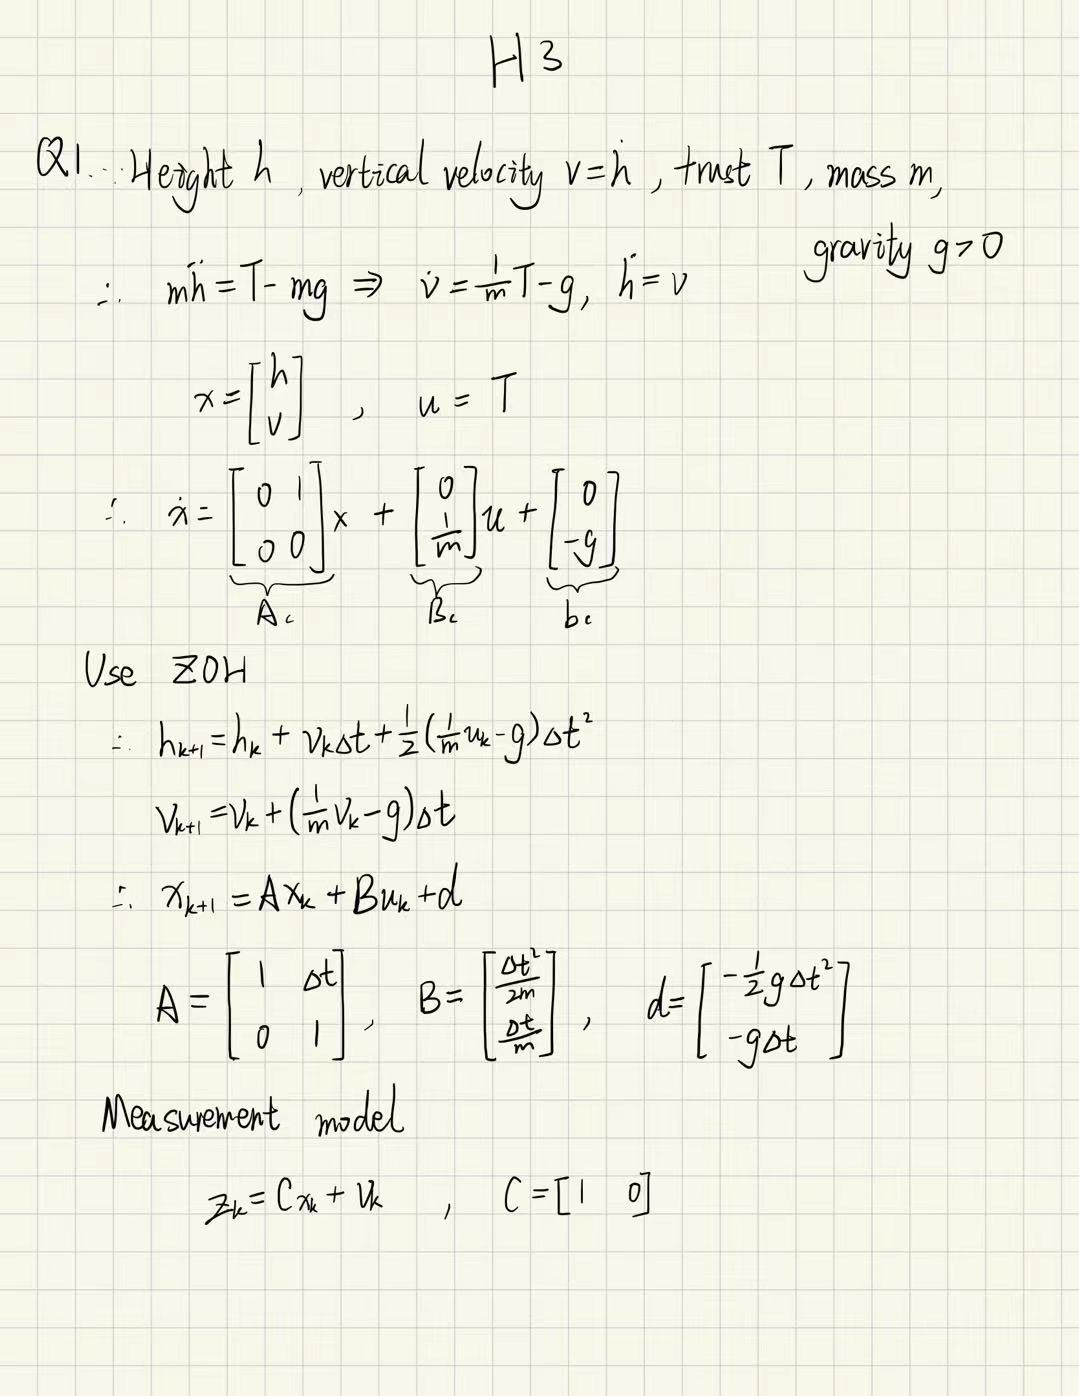 H3
Q1. Height h, vertical velocity v=ḣ, trust T, mass m,
gravity g>0
∴ mḧ = T - mg ⇒ v̇ = 1/m T - g, ḣ = v
x = [h; v], u = T
∴ ẋ = [0 1; 0 0] x + [0; 1/m] u + [0; -g]
A_c B_c b_c
Use ZOH
∴ h_{k+1} = h_k + v_k Δt + 1/2 (1/m u_k - g) Δt²
v_{k+1} = v_k + (1/m v_k - g) Δt
∴ x_{k+1} = A x_k + B u_k + d
A = [1 Δt; 0 1], B = [Δt²/2m; Δt/m], d = [-1/2 g Δt²; -gΔt]
Measurement model
z_k = C x_k + v_k, C = [1 0]